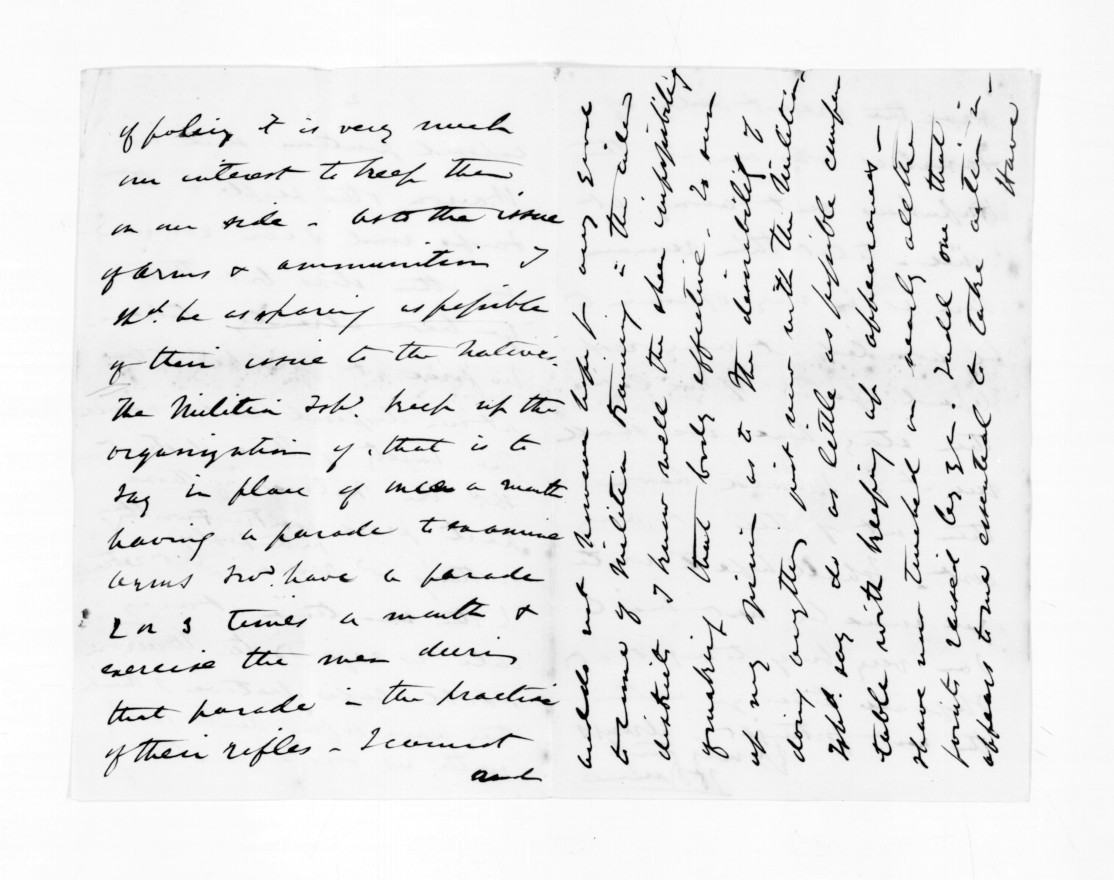 of policy it is very much
our interest to keep them
on our side - as to the issue
of arms & ammunition I
shd. be as sparing as possible
of their issue to the natives.
The Militia I shd. keep up the
organization of, that is to
say in place of once a month
having a parade to examine
arms I wd. have a parade
2 or 3 times a month &
exercise the men during
that parade in the practice
of their rifles - I cannot
and
and do not know what any given
to some of Militia training in the other
districts, I know well the sheer impossibility
of making that body effective. To sum
up my opinion as to the desirability of
doing anything just now with the Militia
I shd. say do as little as possible compa
table with keeping up appearances -
I have now touched on nearly all the
points raised by you. I hold one that
appears to me essential to take action in -
Have